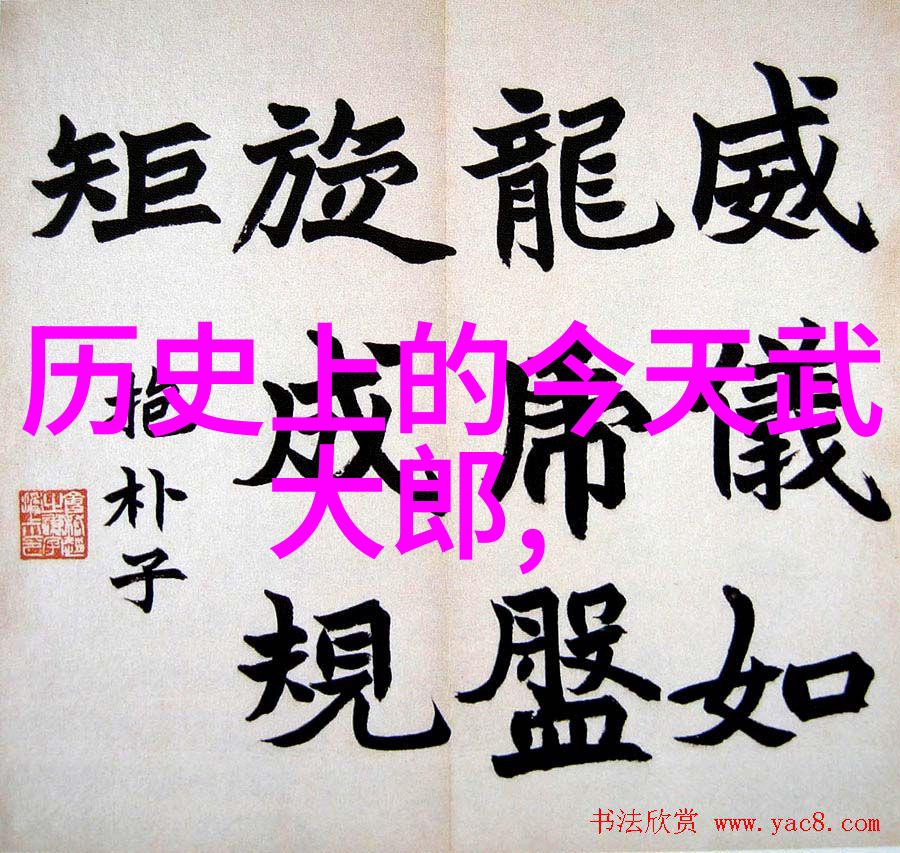 威儀如
龍虎盤
旋成規
矩
抱朴子
历史上的今天武
大郎,
书法欣赏 www.yac8.com